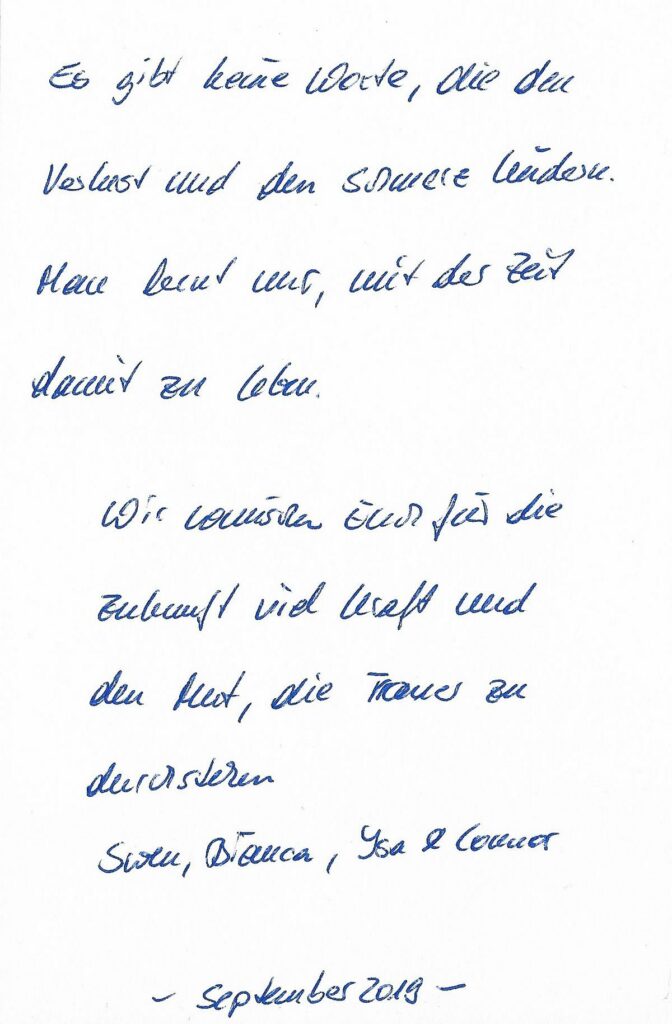 Es gibt keine Worte, die den
Verlust und den Schmerz lindern.
Man lernt nur, mit der Zeit
damit zu leben.
Wir wünschen Euch für die
Zukunft viel Kraft und
den Mut, die Trauer zu
durchstehen
Sven, Bianca, Ysa & Connor
- September 2019 -